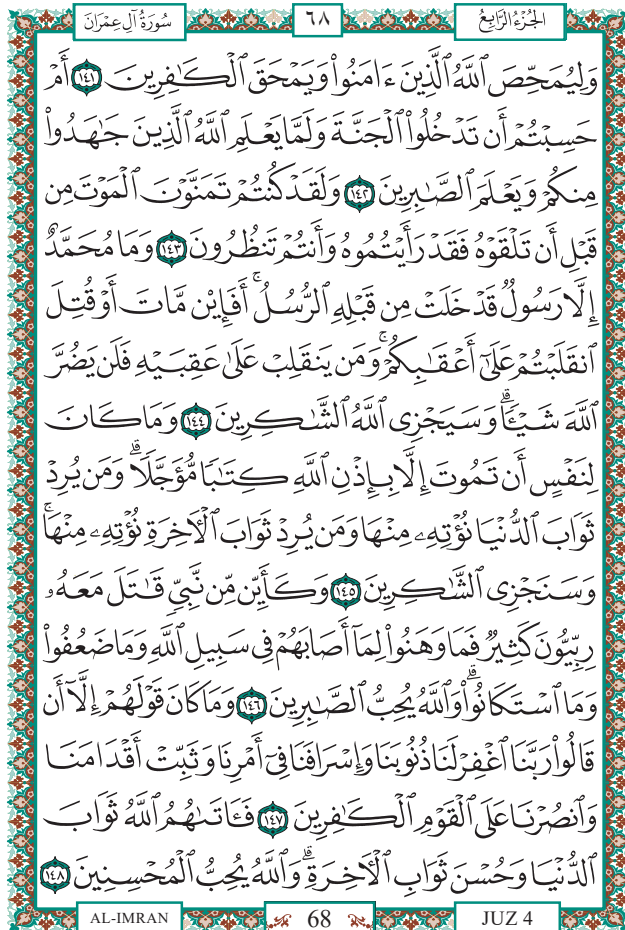 سُورَةُ آلِ عِمْرَانَ ٦٨ الجُزْءُ الرَّابِعُ
وَلِيُمَحِّصَ ٱللَّهُ ٱلَّذِينَ ءَامَنُوا۟ وَيَمْحَقَ ٱلْكَـٰفِرِينَ ١٤١ أَمْ
حَسِبْتُمْ أَن تَدْخُلُوا۟ ٱلْجَنَّةَ وَلَمَّا يَعْلَمِ ٱللَّهُ ٱلَّذِينَ جَـٰهَدُوا۟
مِنكُمْ وَيَعْلَمَ ٱلصَّـٰبِرِينَ ١٤٢ وَلَقَدْ كُنتُمْ تَمَنَّوْنَ ٱلْمَوْتَ مِن
قَبْلِ أَن تَلْقَوْهُ فَقَدْ رَأَيْتُمُوهُ وَأَنتُمْ تَنظُرُونَ ١٤٣ وَمَا مُحَمَّدٌ
إِلَّا رَسُولٌ قَدْ خَلَتْ مِن قَبْلِهِ ٱلرُّسُلُ ۚ أَفَإِي۟ن مَّاتَ أَوْ قُتِلَ
ٱنقَلَبْتُمْ عَلَىٰٓ أَعْقَـٰبِكُمْ ۚ وَمَن يَنقَلِبْ عَلَىٰ عَقِبَيْهِ فَلَن يَضُرَّ
ٱللَّهَ شَيْـًٔا ۗ وَسَيَجْزِى ٱللَّهُ ٱلشَّـٰكِرِينَ ١٤٤ وَمَا كَانَ
لِنَفْسٍ أَن تَمُوتَ إِلَّا بِإِذْنِ ٱللَّهِ كِتَـٰبًا مُّؤَجَّلًا ۗ وَمَن يُرِدْ
ثَوَابَ ٱلدُّنْيَا نُؤْتِهِۦ مِنْهَا وَمَن يُرِدْ ثَوَابَ ٱلْـَٔاخِرَةِ نُؤْتِهِۦ مِنْهَا ۚ
وَسَنَجْزِى ٱلشَّـٰكِرِينَ ١٤٥ وَكَأَيِّن مِّن نَّبِىٍّ قَـٰتَلَ مَعَهُۥ
رِبِّيُّونَ كَثِيرٌ فَمَا وَهَنُوا۟ لِمَآ أَصَابَهُمْ فِى سَبِيلِ ٱللَّهِ وَمَا ضَعُفُوا۟
وَمَا ٱسْتَكَانُوا۟ ۗ وَٱللَّهُ يُحِبُّ ٱلصَّـٰبِرِينَ ١٤٦ وَمَا كَانَ قَوْلَهُمْ إِلَّآ أَن
قَالُوا۟ رَبَّنَا ٱغْفِرْ لَنَا ذُنُوبَنَا وَإِسْرَافَنَا فِىٓ أَمْرِنَا وَثَبِّتْ أَقْدَامَنَا
وَٱنصُرْنَا عَلَى ٱلْقَوْمِ ٱلْكَـٰفِرِينَ ١٤٧ فَـَٔاتَىٰهُمُ ٱللَّهُ ثَوَابَ
ٱلدُّنْيَا وَحُسْنَ ثَوَابِ ٱلْـَٔاخِرَةِ ۗ وَٱللَّهُ يُحِبُّ ٱلْمُحْسِنِينَ ١٤٨
AL-IMRAN 68 JUZ 4